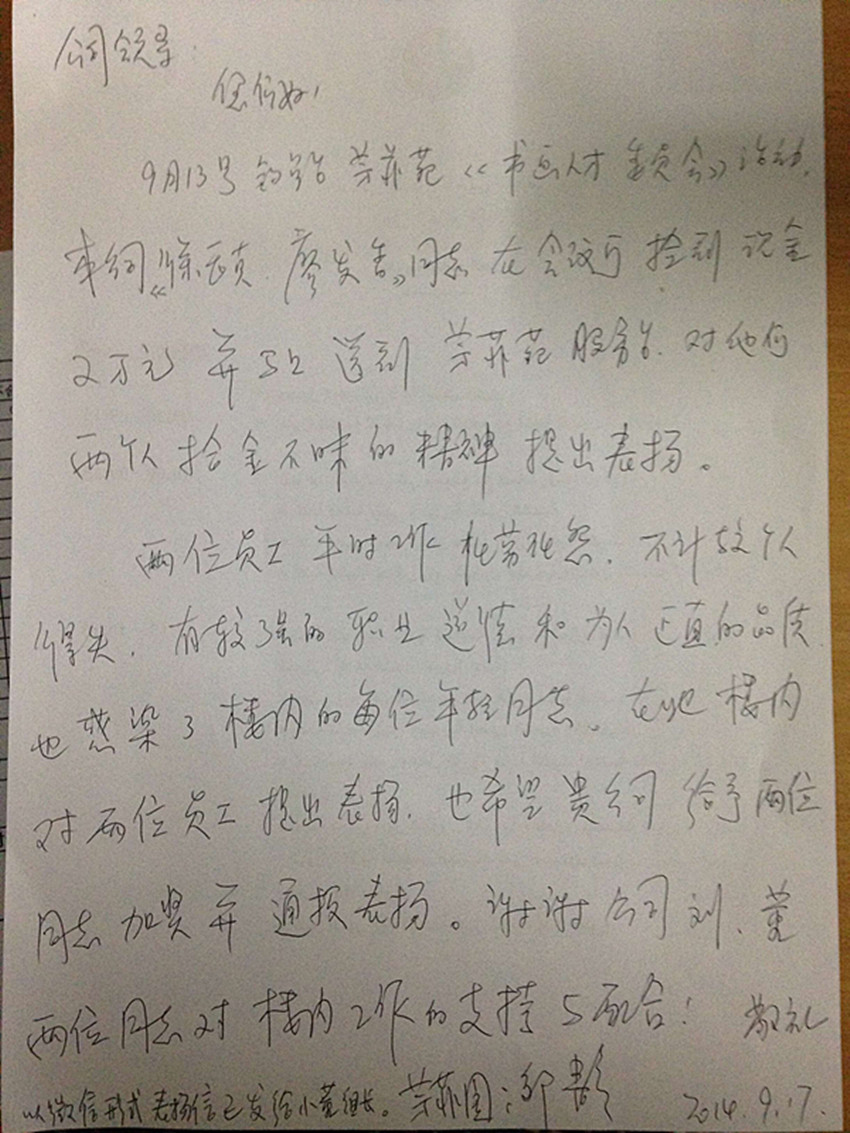 公司领导：
您们好！
9月13号 钓鱼台 芳菲苑《书画人才委员会》活动，
本公司《徐 廖发吉》同志 在会议厅 捡到 现金
2万元 并马上 送到 芳菲苑 服务台．对他们
两个人 拾金不昧 的 精神 提出表扬。
两位员工 平时工作 任劳任怨．不计较个人
得失．有较强的 职业道德 和 为人正直的品质
也感染了楼内的每位年轻同志。在此 楼内
对两位员工 提出表扬．也希望贵公司 给予 两位
同志 加奖 并 通报表扬。谢谢 公司 刘、董
两位同志对 楼内工作的支持与配合！ 敬礼
以微信形式 表扬信已发给小董组长。 芳菲园：邹 2014.9.17.